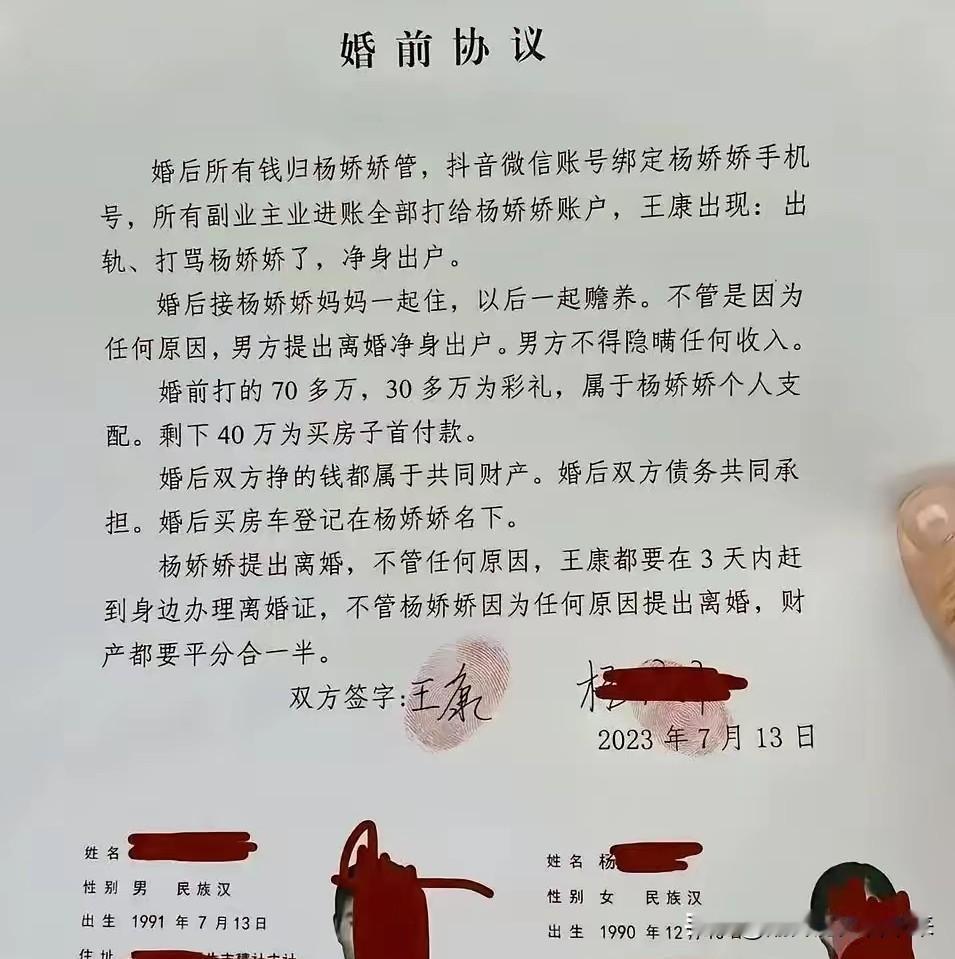 婚前协议
婚后所有钱归杨娇娇管，抖音微信账号绑定杨娇娇手机
号，所有副业主业进账全部打给杨娇娇账户，王康出现：出
轨、打骂杨娇娇了，净身出户。
婚后接杨娇娇妈妈一起住，以后一起赡养。不管是因为
任何原因，男方提出离婚净身出户。男方不得隐瞒任何收入。
婚前打的 70 多万，30 多万为彩礼，属于杨娇娇个人支
配。剩下 40 万为买房子首付款。
婚后双方挣的钱都属于共同财产。婚后双方债务共同承
担。婚后买房车登记在杨娇娇名下。
杨娇娇提出离婚，不管任何原因，王康都要在 3 天内赶
到身边办理离婚证，不管杨娇娇因为任何原因提出离婚，财
产都要平分合一半。
双方签字:王康 杨
2023 年 7 月 13 日
姓名 姓名 杨
性别 男 民族 汉 性别 女 民族 汉
出生 1991 年 7 月 13 日 出生 1990 年 12
住址